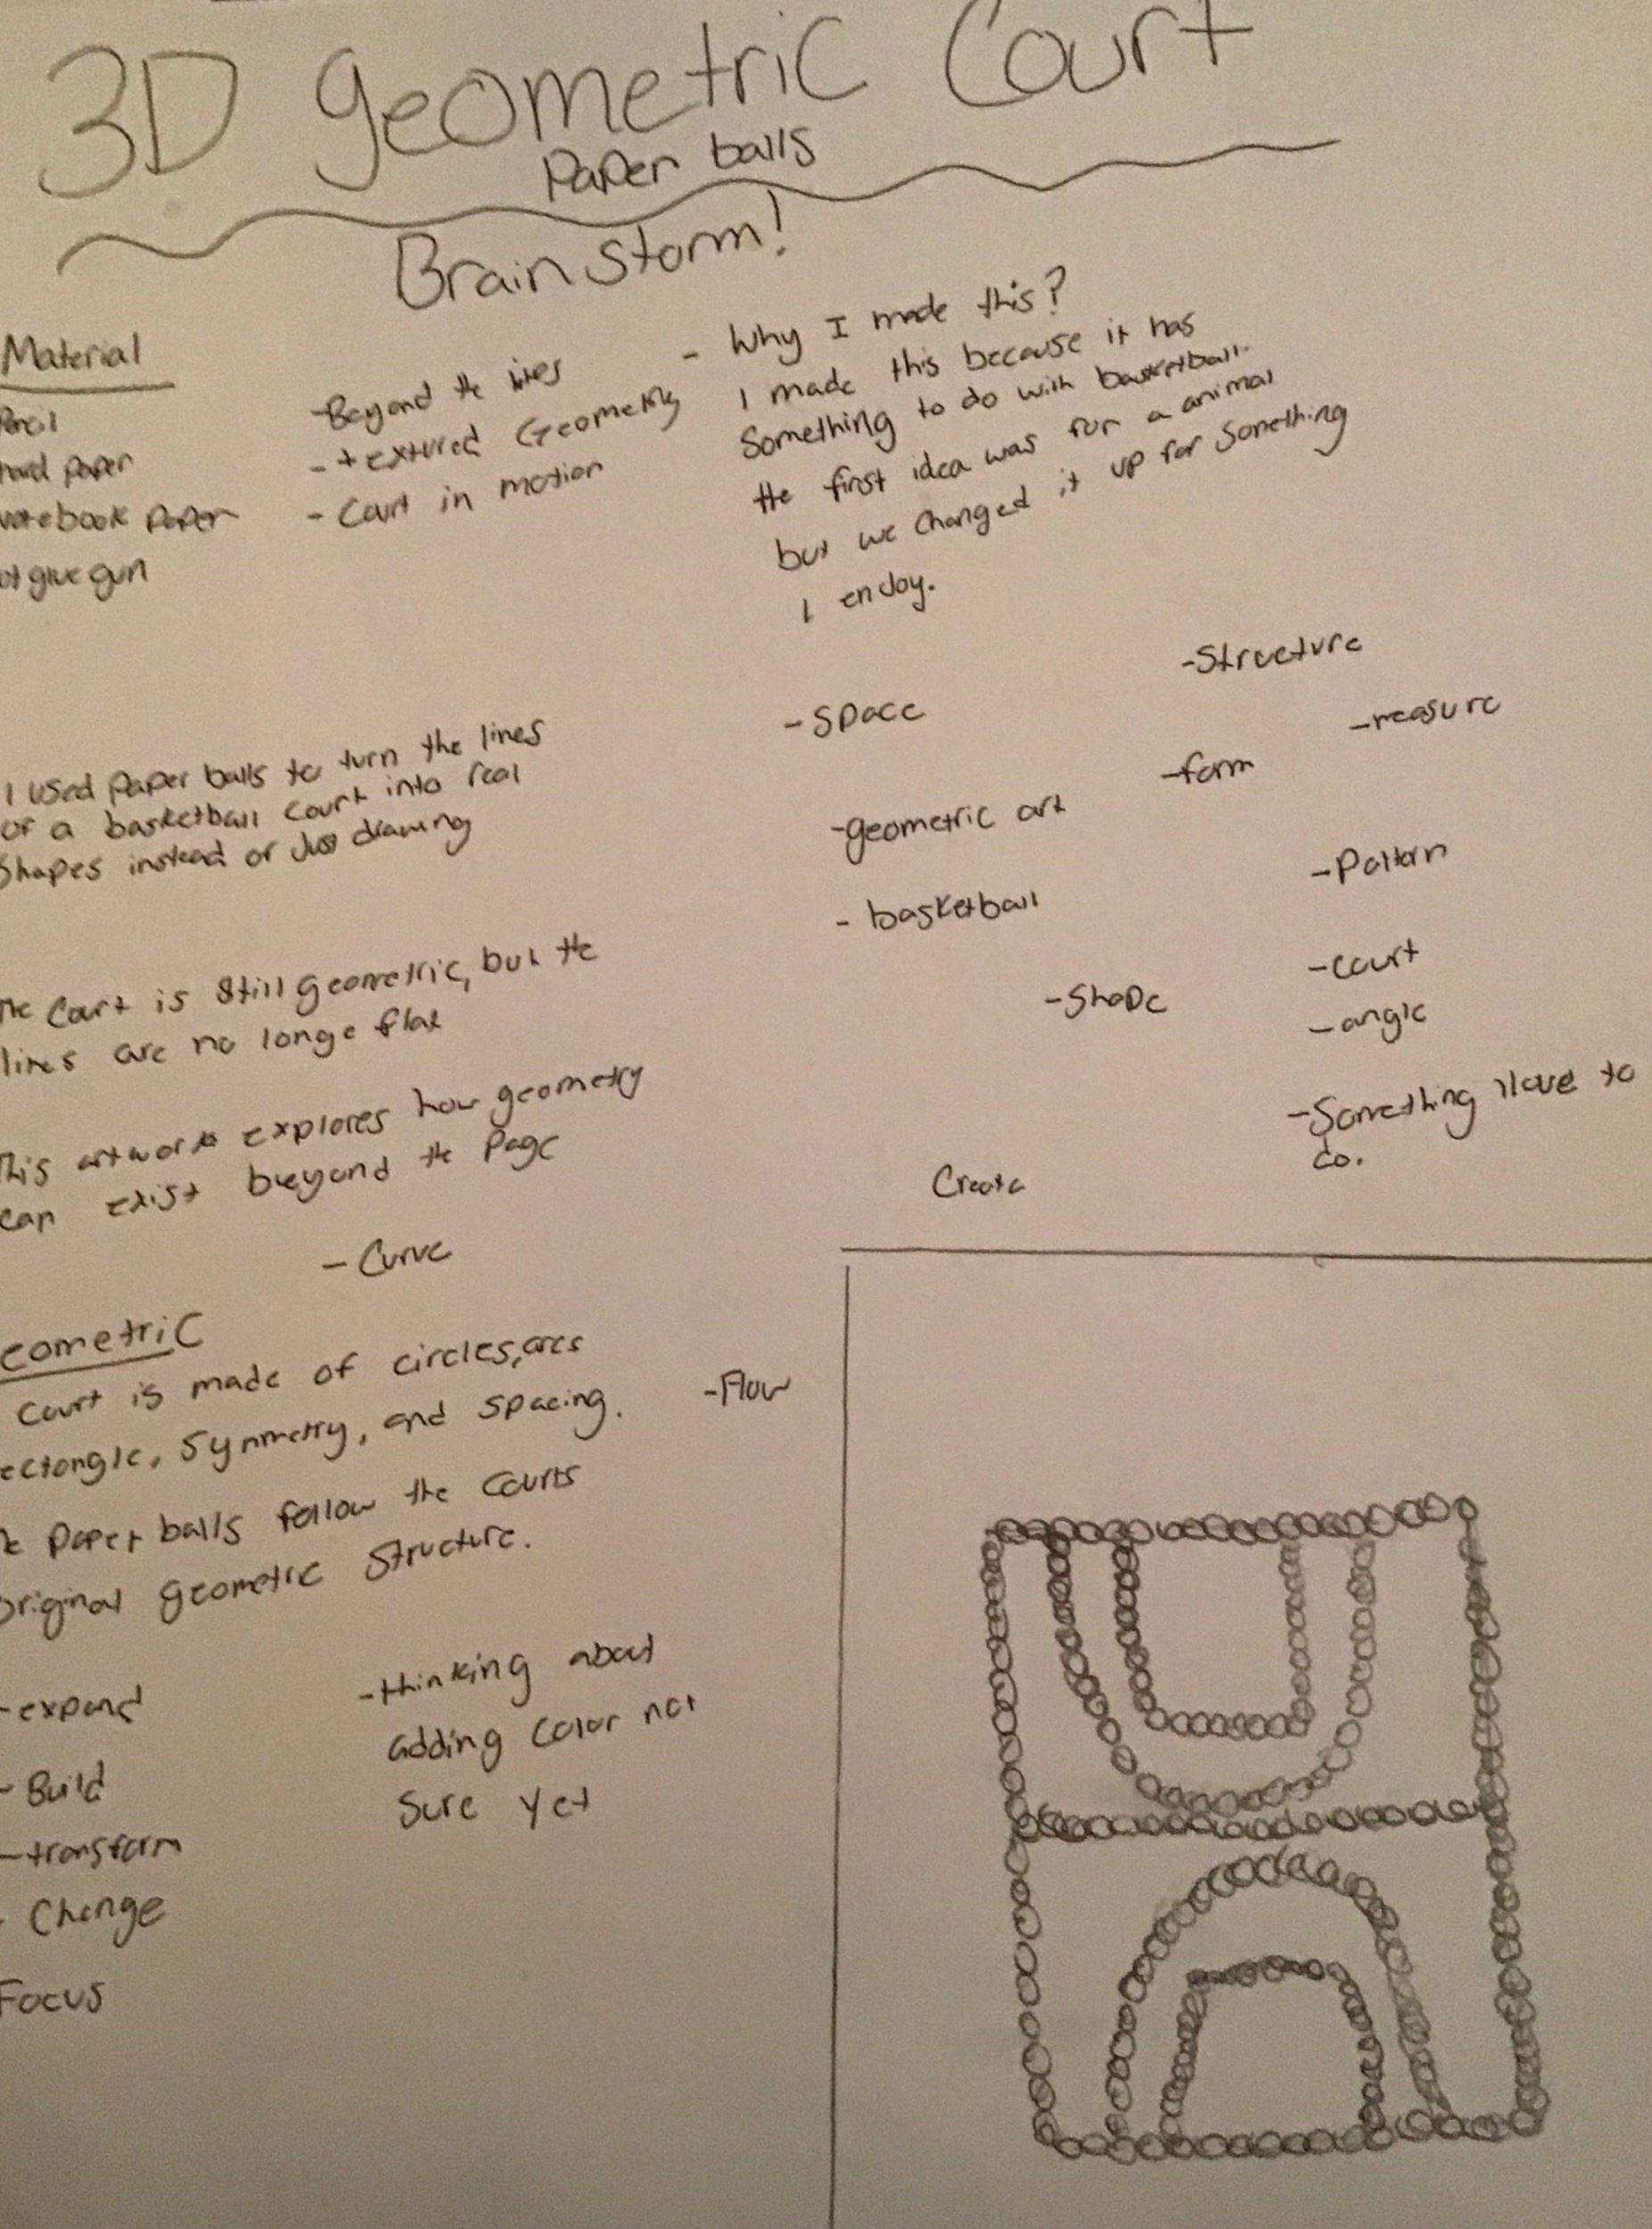 3D geometric Court
Paper balls
Brain storm!
Material
Pencil
hard paper
notebook paper
ot glue gun
-Beyond the lines
-textured Geometry
-Court in motion
- Why I made this?
I made this because it has
Something to do with basketball.
the first idea was for a animal
but we changed it up for something
I enjoy.
-Structure
-space
-measure
-form
-geometric art
-Pattern
- basketball
-court
-Shape
-angle
-Something I love to
do.
Create
I used paper balls to turn the lines
of a basketball court into real
Shapes instead of Just drawing
The Court is still geometric, but the
lines are no longe flat
This artwork explores how geometry
can exist beyond the page
- Curve
eometric
Court is made of circles, arcs
ectangle, Symmetry, and spacing.
-Flow
e paper balls follow the courts
original geometric Structure.
-expand
- Build
-transform
- Change
Focus
-thinking about
adding color not
Sure yet